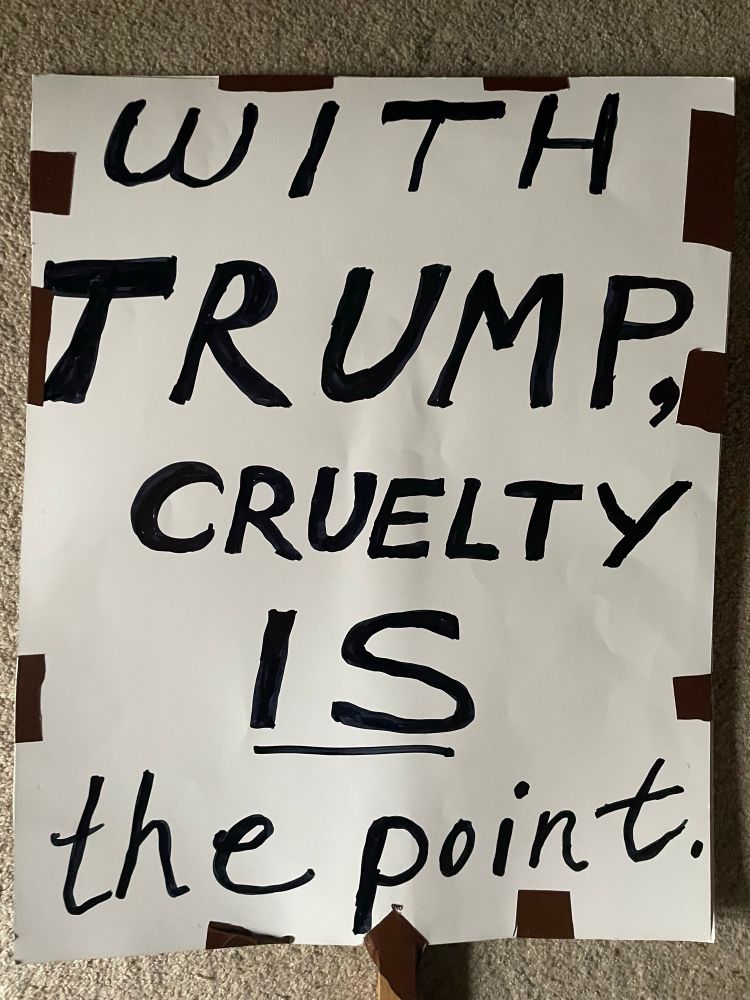 WITH
TRUMP,
CRUELTY
IS
the point.